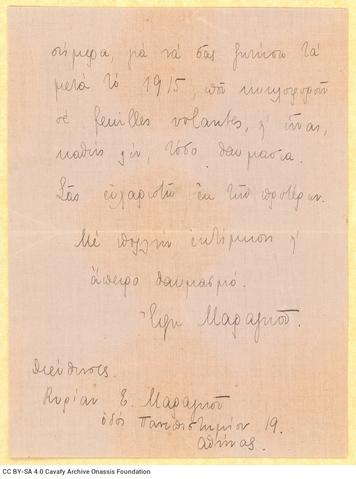 σήμερα, γιὰ νὰ σᾶς ζητήσω τὰ
μετὰ τὸ 1915, ποὺ κυκλοφοροῦν
σὲ feuilles volantes, κ' εἶναι,
καθὼς λέν, τόσο θαυμαστά.
Σᾶς εὐχαριστῶ ἐκ τῶν προτέρων.
Μὲ πολλὴν ἐκτίμηση κ'
ἄπειρο θαυμασμό.
Ἔφη Μαραγκοῦ.
Διεύθυνσις.
Κυρίαν Ε. Μαραγκοῦ
ὁδὸς Πανεπιστημίου 19.
Ἀθήνας.
CC BY-SA 4.0 Cavafy Archive Onassis Foundation